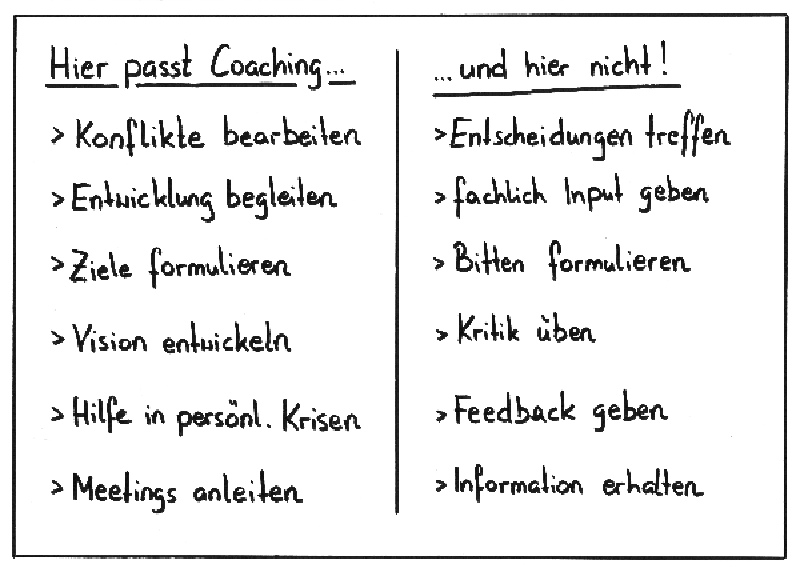 Hier passt Coaching...
> Konflikte bearbeiten
> Entwicklung begleiten
> Ziele formulieren
> Vision entwickeln
> Hilfe in persönl. Krisen
> Meetings anleiten
...und hier nicht!
> Entscheidungen treffen
> fachlich Input geben
> Bitten formulieren
> Kritik üben
> Feedback geben
> Information erhalten